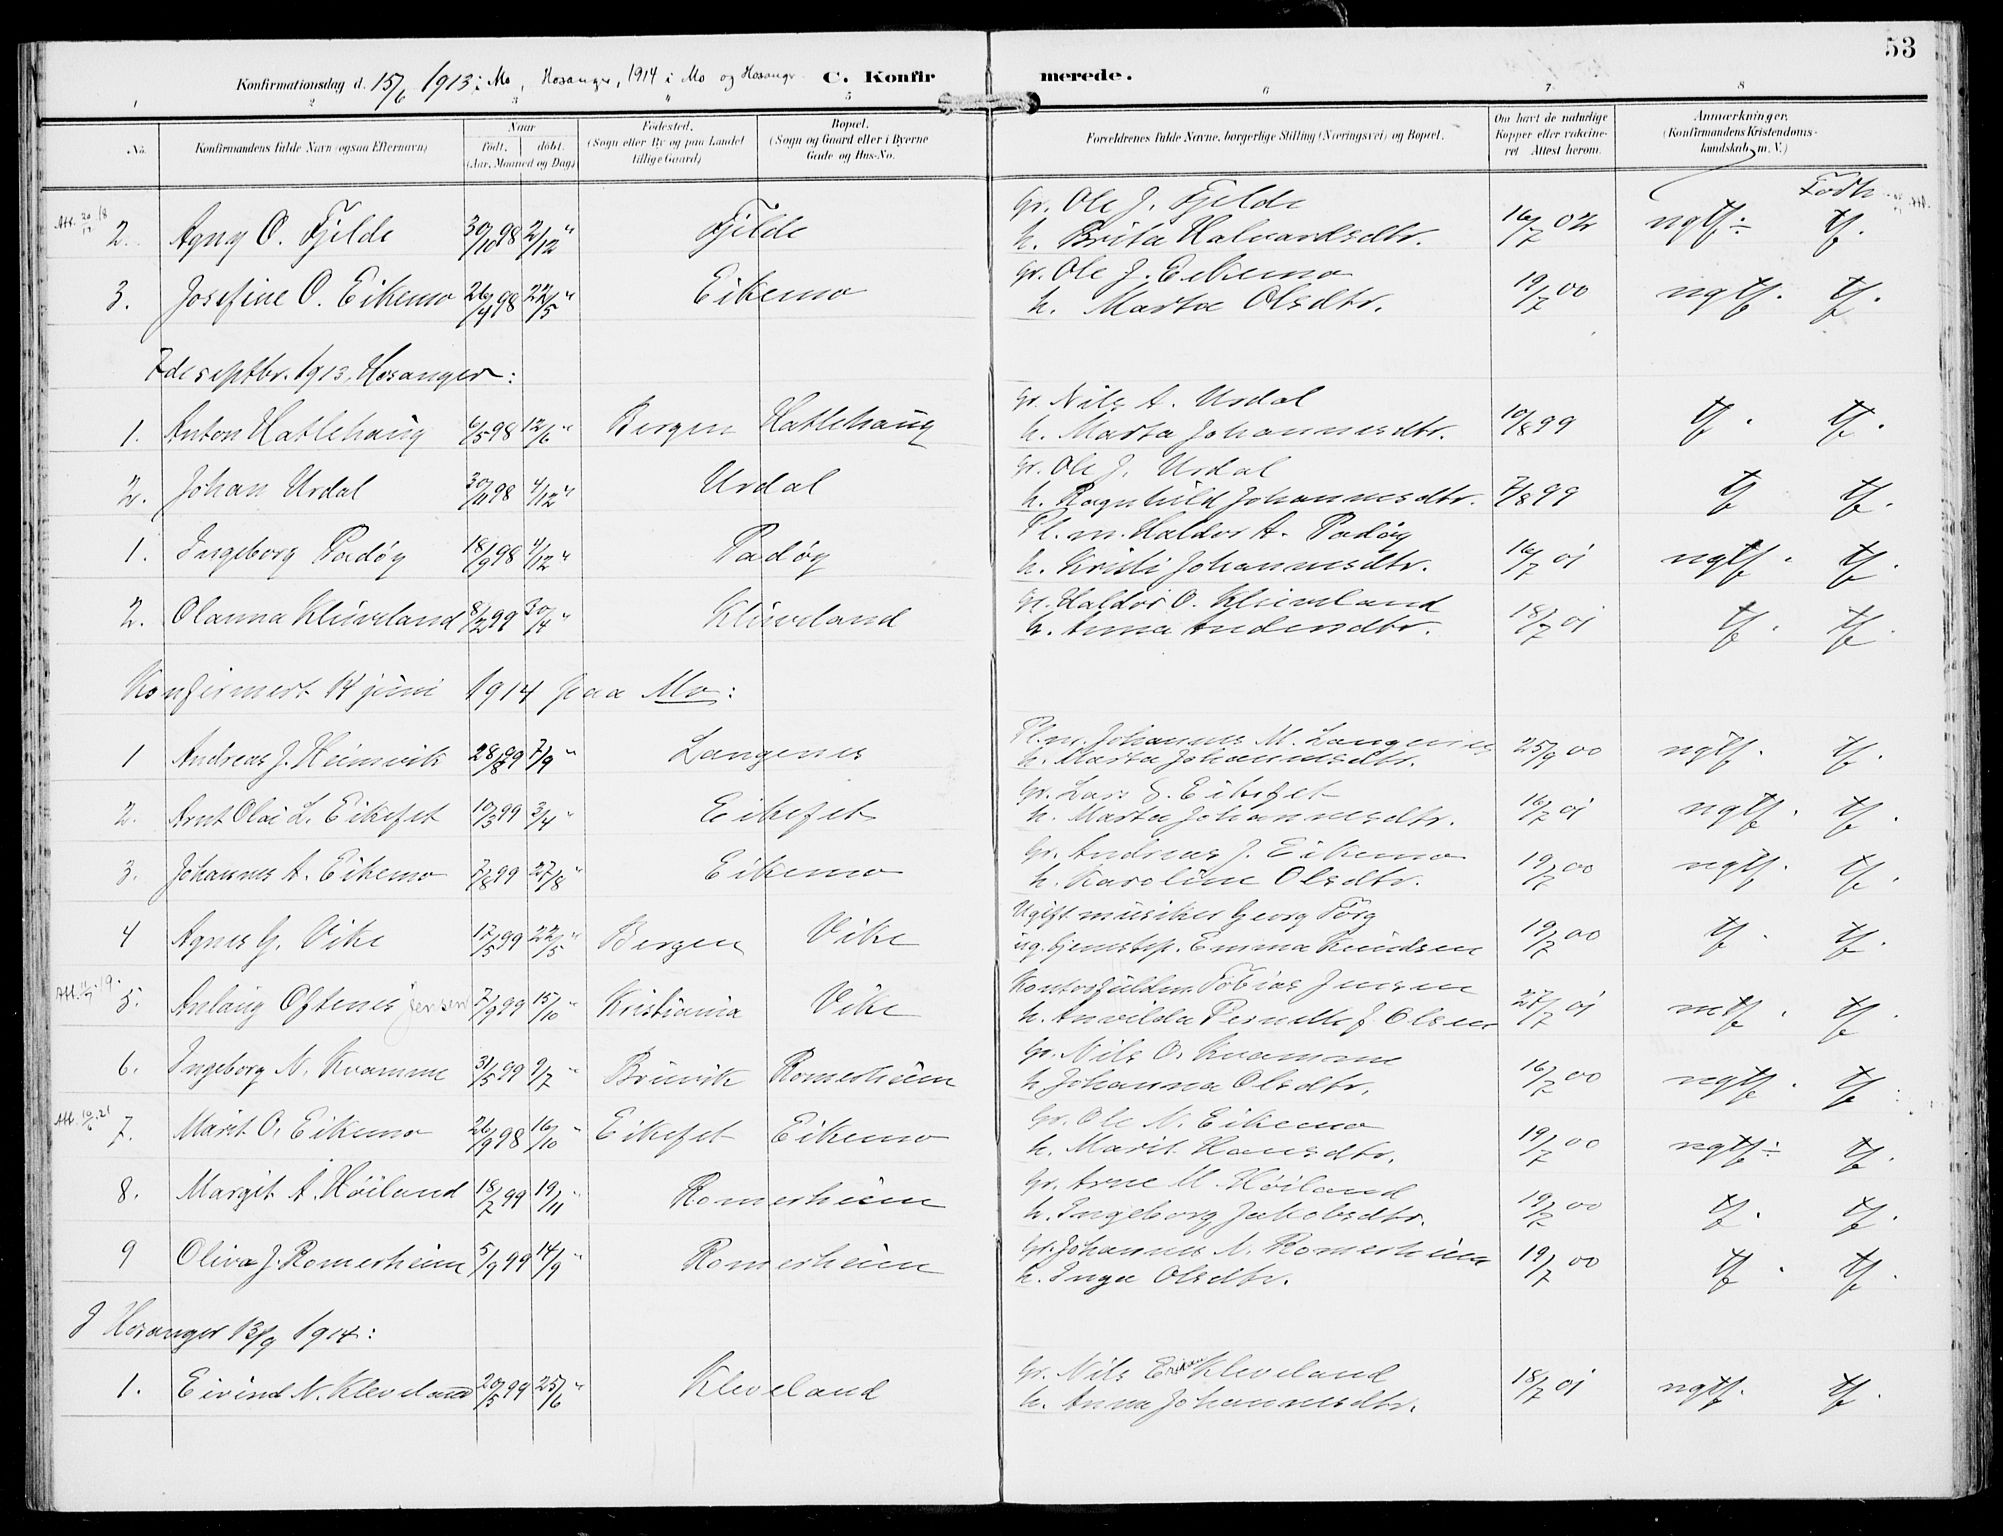 53
Konfirmationsdag d. 15/6 1913 i Mo, Hosanger, 1914 i Mo og Hosangr. C. Konfirmerede.
1 2 3 4 5 6 7 8
No. Konfirmandens fulde Navn (ogsaa Efternavn) Naar født. døbt. (Aar, Maaned og Dag) Fødested. (Sogn eller By og paa Landet tillige Gaard) Bopæl. (Sogn og Gaard eller i Byerne Gade og Hus-No. Forældrenes fulde Navne, borgerlige Stilling (Næringsvei) og Bopæl. Om havt de naturlige Kopper eller vakcineret Attest herom. Anmærkninger. (Konfirmandens Kristendomskundskab m. V.)
Gr. Ole J. Fjelde
2. Agny O. Fjelde 30/10 98 2/12 " Fjelde h. Brita Halvardsdtr. 16/7 02 ngtf ÷ tf.
Gr. Ole J. Eikemo
3. Josefine O. Eikemo 26/4 98 22/5 " Eikemo h. Marta Olsdtr. 19/7 00 ngtf. tf.
7de septbr. 1913, Hosanger:
Gr. Nils A. Urdal
1. Anton Hatlehaug 6/5 98 12/6 " Bergen Hatlehaug h. Marta Johannesdtr. 10/8 99 tf. tf.
Gr. Ole J. Urdal
2. Johan Urdal 30/11 98 4/12 " Urdal h. Ragnhild Johannesdtr. 7/8 99 tf tf.
Pl.m. Haldor A. Padøy
1. Ingeborg Padøy 18/9 98 4/12 " Padøy h. Kristi Johannesdtr. 16/7 01 ngtf. tf.
Gr. Haldor O. Kluveland
2. Olanna Kluveland 8/2 99 30/4 " Kluveland h. Anna Andersdtr. 18/7 01 tf. tf.
Konfirmert 14 juni 1914 paa Mo:
Pl.m. Johannes M. Langenes
1 Andreas J. Heimvik 28/8 99 7/9 " Langenes h. Marta Johannesdtr. 25/9 00 ngtf. tf.
Gr. Lars O. Eikefet
2. Arnt Olai L. Eikefet 10/3 99 3/4 " Eikefet h. Marta Johannesdtr. 16/7 01 ngtf. tf.
Gr. Andreas J. Eikemo
3. Johannes A. Eikemo 7/8 99 27/8 " Eikemo h. Karoline Olsdtr. 19/7 00 ngtf. tf.
Ugift musiker Georg Törg
4 Agnes G. Vike 17/5 99 22/5 " Bergen Vike Emma Knudsen 19/7 00 tf. tf.
Tobias Jensen
5. Anlaug Oftenes Jensen 7/9 99 15/10 " Kristiania Vike h. Anvilda Pernelle J. Olsen 27/7 01 mtf. tf.
Gr. Nils O. Kvamme
6. Ingeborg N. Kvamme 31/5 99 9/7 " Bruvik Romerheim h. Johanna Olsdtr. 16/7 00 ngtf. tf.
Gr. Ole N. Eikemo
7. Marit O. Eikemo 26/9 98 16/10 " Eikefet Eikemo h. Marit Hansdtr. 19/7 00 ngtf ÷ tf.
Gr. Arne M. Høiland
8. Margit A. Høiland 18/7 99 19/11 " Romerheim h. Ingeborg Jakobsdtr. 19/7 00 tf. tf.
Gr. Johannes N. Romerheim
9 Oliva J. Romerheim 5/9 99 14/9 " Romerheim h. Inga Olsdtr. 19/7 00 tf. tf.
I Hosanger 13/9 1914:
Gr. Nils Eriksen Kleveland
1. Eivind N. Kleveland 20/5 99 25/6 " Kleveland h. Anna Johannesdtr. 18/7 01 ngtf. tf.